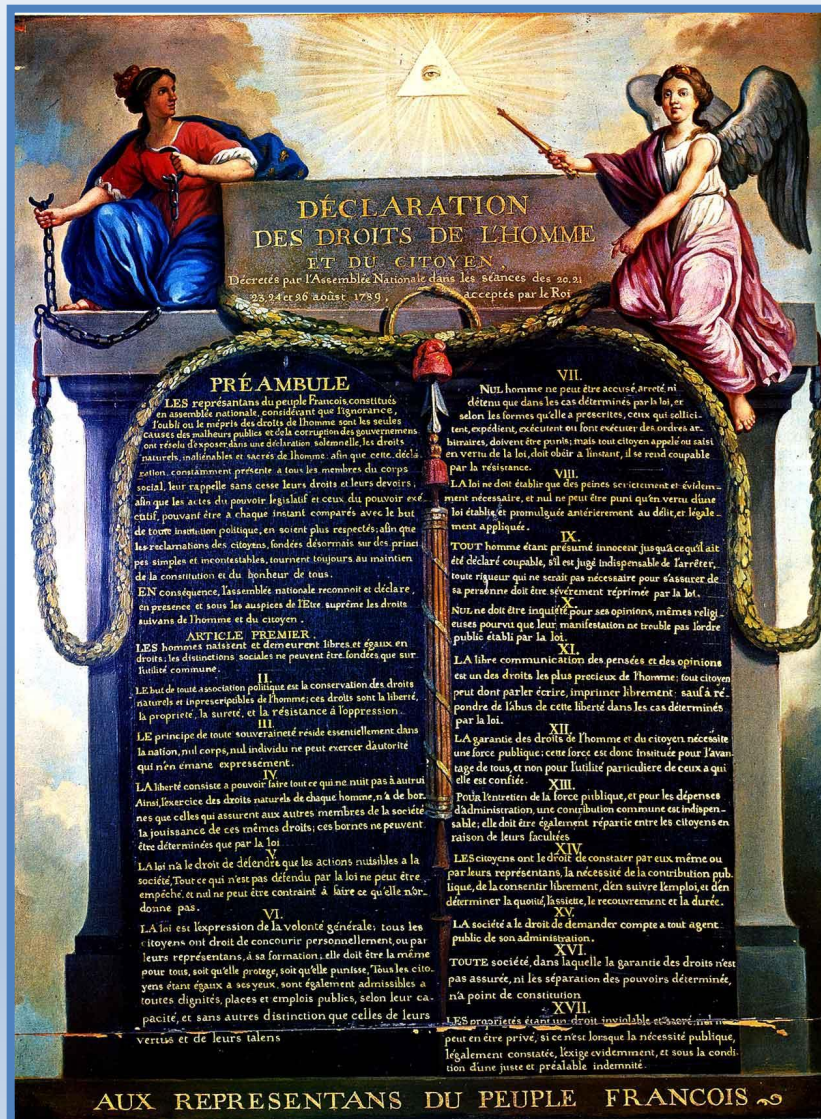 DÉCLARATION
DES DROITS DE L'HOMME
ET DU CITOYEN
Décretés par l'Assemblée Nationale dans les séances des 20, 21
23, 24 et 26 aoûst 1789, acceptés par le Roi
PRÉAMBULE
LES représentans du peuple Francois, constitués
en assemblée nationale, considérant que l'ignorance,
l'oubli ou le mépris des droits de l'homme sont les seules
causes des malheurs publics et de la corruption des gouvernemens
ont résolu d'exposer, dans une déclaration solemnelle, les droits
naturels, inaliénables et sacrés de l'homme; afin que cette décla
ration, constamment présente a tous les membres du corps
social, leur rappelle sans cesse leurs droits et leurs devoirs,
afin que les actes du pouvoir legislatif et ceux du pouvoir exé
cutif, pouvant être a chaque instant comparés avec le but
de toute institution politique, en soient plus respectés; afin que
les reclamations des citoyens, fondées désormais sur des princi
pes simples et incontestables, tournent toujours au maintien
de la constitution et du bonheur de tous.
EN conséquence, l'assemblée nationale reconnoit et déclare,
en presence et sous les auspices de l'Etre suprême les droits
suivans de l'homme et du citoyen.
ARTICLE PREMIER.
LES hommes naissent et demeurent libres et égaux en
droits; les distinctions sociales ne peuvent être fondées que sur
l'utilité commune.
II.
LE but de toute association politique est la conservation des droits
naturels et inprescripibles de l'homme; ces droits sont la liberté,
la propriété, la sureté, et la résistance à l'oppression.
III.
LE principe de toute souveraineté réside essentiellement dans
la nation, nul corps, nul individu ne peut exercer d'autorité
qui n'en émane expressément.
IV.
LA liberté consiste a pouvoir faire tout ce qui ne nuit pas à autrui
Ainsi, l'exercice des droits naturels de chaque homme, n'a de bor-
nes que celles qui assurent aux autres membres de la société
la jouissance de ces mêmes droits; ces bornes ne peuvent
être déterminées que par la loi
V.
LA loi n'a le droit de défendre que les actions nuisibles a la
société, Tout ce qui n'est pas défendu par la loi ne peut être
empêché, et nul ne peut être contraint à faire ce qu'elle n'or-
donne pas.
VI.
LA loi est l'expression de la volonté générale; tous les
citoyens ont droit de concourir personnellement, ou par
leurs représentans, á sa formation; elle doit être la même
pour tous, soit qu'elle protege, soit qu'elle punisse, Tous les cito
yens étant égaux a ses yeux, sont également admissibles a
toutes dignités, places et emplois publics, selon leur ca-
pacité, et sans autres distinction que celles de leurs
vertus et de leurs talens
VII.
NUL homme ne peut être accusé, arreté, ni
détenu que dans les cas déterminés par la loi, et
selon les formes qu'elle a prescrites, ceux qui sollici-
tent, expédient, exécutent ou font exécuter des ordres ar-
bitraires, doivent être punis; mais tout citoyen appelé ou saisi
en vertu de la loi, doit obéir a l'instant, il se rend coupable
par la résistance.
VIII.
LA loi ne doit établir que des peines strictement et évidem-
ment nécessaire, et nul ne peut être puni qu'en vertu d'une
loi établie et promulguée antérierement au délit, et légale-
ment appliquée.
IX.
TOUT homme étant présumé innocent jusqu'a ce qu'il ait
été déclaré coupable, s'il est jugé indispensable de l'arrêter,
toute rigueur qui ne serait pas nécessaire pour s'assurer de
sa personne doit être sévèrement réprimée par la loi.
X.
NUL ne doit être inquiété pour ses opinions, mêmes religi-
euses pourvu que leur manifestation ne trouble pas l'ordre
public établi par la loi.
XI.
LA libre communication des pensées et des opinions
est un des droits les plus precieux de l'homme; tout citoyen
peut dont parler écrire, imprimer librement; sauf à ré-
pondre de l'abus de cette liberté dans les cas déterminés
par la loi.
XII.
LA garantie des droits de l'homme et du citoyen nécessite
une force publique; cette force est donc instituée pour l'avan-
tage de tous, et non pour l'utilité particuliere de ceux a qui
elle est confiée.
XIII.
POUR l'entretien de la force publique, et pour les dépenses
d'administration, une contribution commune est indispen-
sable; elle doit être également répartie entre les citoyens en
raison de leurs facultées
XIV.
LES citoyens ont le droit de constater par eux même ou
par leurs représentans, la nécessité de la contribution pub-
lique, de la consentir librement, d'en suivre l'emploi, et d'en
déterminer la quotité, l'assiette, le recouvrement et la durée.
XV.
LA société a le droit de demander compte a tout agent
public de son administration.
XVI.
TOUTE société, dans laquelle la garantie des droits n'est
pas assurée, ni les séparation des pouvoirs déterminée,
n'a point de constitution
XVII.
LES proprietés étant un droit inviolable et sacré, nul ne
peut en être privé, si ce n'est lorsque la nécessité publique,
légalement constatée, l'exige evidemment, et sous la condi-
tion d'une juste et préalable indemnité.
AUX REPRESENTANS DU PEUPLE FRANCOIS